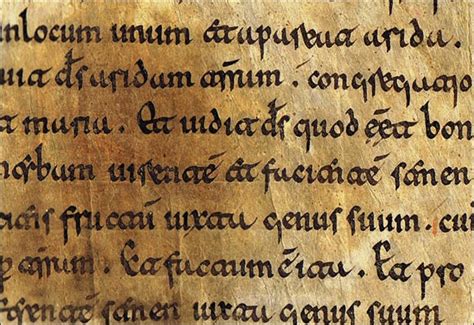 inlocum unum et apareat arida.
uit ds aridam terram. congregatio
maria. Et uidit ds quod eet bon
herbam uirentē et facientē semen
fructū iuxta genus suum. cui
terram. Et factum ē ita. Et pro
ferentē semen iuxta genus suum